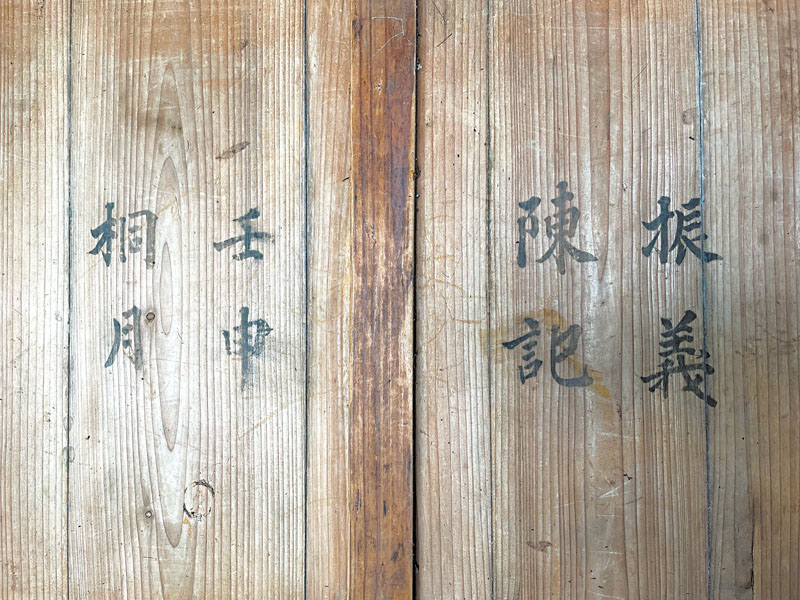 振義
陳記
壬申
桐月